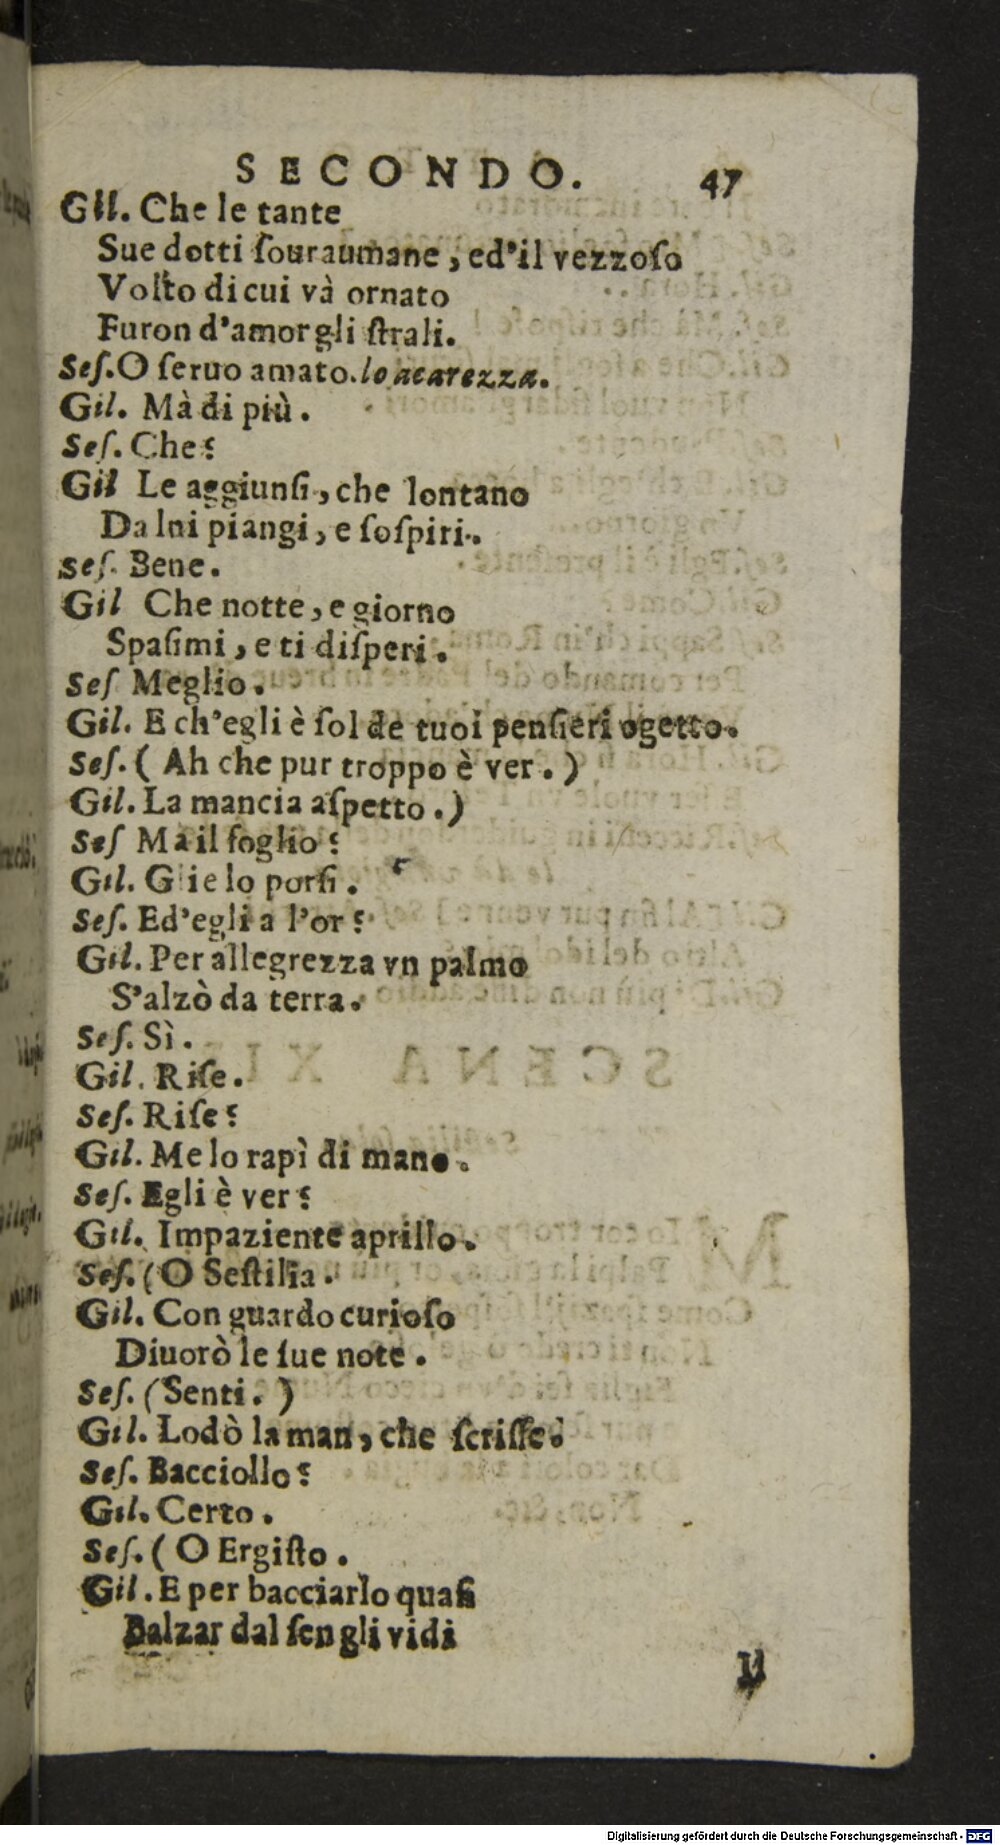 SECONDO. 47
Gil. Che le tante
Sue dotti ſouraumane, ed'il vezzoſo
Volto di cui và ornato
Furon d'amor gli ſtrali.
Seſ. O ſeruo amato. lo acarezza.
Gil. Mà di più.
Seſ. Che?
Gil Le aggiunſi, che lontano
Da lui piangi, e ſoſpiri.
Seſ. Bene.
Gil Che notte, e giorno
Spaſimi, e ti diſperi.
Seſ Meglio.
Gil. E ch'egli è ſol de tuoi penſieri ogetto.
Seſ. ( Ah che pur troppo è ver. )
Gil. La mancia aſpetto. )
Seſ Ma il foglio?
Gil. Glie lo porſi.
Seſ. Ed'egli a l'or?
Gil. Per allegrezza vn palmo
S'alzò da terra.
Seſ. Sì.
Gil. Riſe.
Seſ. Riſe?
Gil. Me lo rapì di mano.
Seſ. Egli è ver?
Gil. Impaziente aprillo.
Seſ. (O Seſtilia.
Gil. Con guardo curioſo
Diuorò le ſue note.
Seſ. (Senti. )
Gil. Lodò la man, che ſcriſſe.
Seſ. Bacciollo?
Gil. Certo.
Seſ. ( O Ergiſto.
Gil. E per bacciarlo quaſi
Balzar dal ſen gli vidi
Il
Digitalisierung gefördert durch die Deutsche Forschungsgemeinschaft - DFG